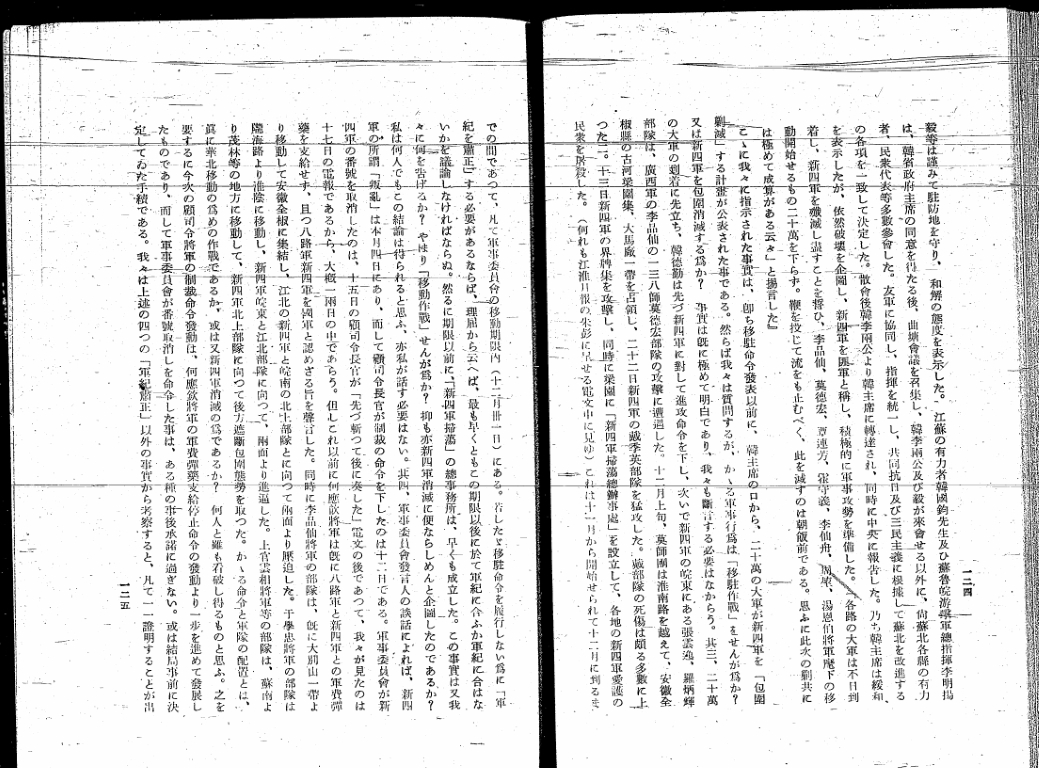 毅等は謹みて駐防地を守り、和解の態度を表示した。江蘇の有力者韓國鈞先生及び蘇魯皖游擊軍總指揮李明揚
は、韓省政府主席の同意を得たる後、曲塘會議を召集し、韓李兩公及び毅が來會せる以外に、尙蘇北各縣の有力
者、民衆代表等多數參會した。友軍に協同し、指揮を統一し、共同抗日及び三民主義に根據して蘇北を改進する
の各項を一致して決定した。散會後韓李兩公より韓主席に轉達され、同時に中央に報告した。乃ち韓主席は緩和
を表示したが、依然破壞を企圖し、新四軍を匪軍と稱し、積極的に軍事攻勢を準備した。各路の大軍は不日到
着し、新四軍を殲滅し盡すことを誓ひ、李品仙、莫德宏、 連芳、霍守義、李仙舟、 、湯恩伯將軍麾下の移
動開始せるもの二十萬を下らず。鞭を投じて流をも止むべく、此を滅すのは朝飯前である。思ふに此次の剿共に
は極めて成算がある云々」と揚言した』
こゝに我々に指示された事實は、卽ち移駐命令發表以前に、韓主席の口から、二十萬の大軍が新四軍を「包圍
剿滅」する計畫が公表された事である。然らば我々は質問するが、かゝる軍事行爲は「移駐作戰」をせんが爲か?
又は新四軍を包圍消滅する爲か? 事實は旣に極めて明白であり、我々も斷言する必要はなからう。其三、二十萬
の大軍の到着に先立ち、韓德勤は先づ新四軍に對して進攻命令を下し、次いで新四軍の皖東にある張雲逸、羅炳輝
部隊は、廣西軍の李品仙の一三八師莫德宏部隊の攻擊に遭遇した。十二月上旬、莫師團は淮南路を越えて、安徽全
椒縣の古河梁園集、大馬廠一帶を占領し、二十二日新四軍の戴季英部隊を猛攻した。戴部隊の死傷は頗る多數に上
つた二。十三日新四軍の界牌集を攻擊し、同時に梁園に「新四軍掃蕩總辦事處」を設立して、各地の新四軍愛護の
民衆を屠殺した。(何れも江淮日報の朱彭に呈せる電文中に見ゆ)これは十一月から開始せられて十二月に到るま
一二四
での間であつて、凡て軍事委員會の移動期限內(十二月卅一日)にある。若したゞ移駐命令を履行しない爲に「軍
紀を肅正」する必要があるならば、理屈から云へば、最も早くともこの期限以後に於て軍紀に合ふか軍紀に合はな
いかを議論しなければならぬ。然るに期限以前に「新四軍掃蕩」の總事務所は、早くも成立した。この事實は又我
々に何を告げるか? やはり「移動作戰」せんが爲か? 抑も亦新四軍消滅に便ならしめんと企圖したのであるか?
私は何人でもこの結論は得られると思ふ、亦私が話す必要はない。其四、軍事委員會發言人の談話によれば、新四
軍の所謂「叛亂」は本月四日にあり、而して顧司令長官が制裁の命令を下したのは十二日である。軍事委員會が新
四軍の番號を取消したのは、十五日の顧司令長官が「先づ斬つて後に奏した」電文の後であつて、我々が見たのは
十七日の電報であるから、大槪一兩日の中であらう。但しこれ以前に何應欽將軍は旣に八路軍と新四軍との軍費彈
藥を支給せず、且つ八路軍新四軍を國軍と認めざる旨を聲言した。同時に李品仙將軍の部隊は、旣に大別山一帶よ
り移動して安徽全椒に集結し、江北の新四軍と皖南の北上部隊とに向つて兩面より壓迫した。于學忠將軍の部隊は
隴海路より淮陰に移動し、新四軍皖東と江北部隊に向つて、兩面より進逼した。上官雲相將軍等の部隊は、蘇南よ
り茂林等の地方に移動して、新四軍北上部隊に向つて後方遮斷包圍態勢を取つた。かゝる命令と軍隊の配置とは、
眞に華北移動の爲めの作戰であるか、或は又新四軍消滅の爲であるか? 何人と雖も看破し得るものと思ふ。之を
要するに今次の顧司令將軍の制裁命令發動は、何應欽將軍の軍費彈藥支給停止命令の發動より一步を進めて發展し
たものであり、而して軍事委員會が番號取消しを命令した事は、ある種の事後承諾に過ぎない。或は結局事前に決
定してゐた手續である。我々は上述の四つの「軍紀肅正」以外の事實から考察すると、凡て一一證明することが出
一二五